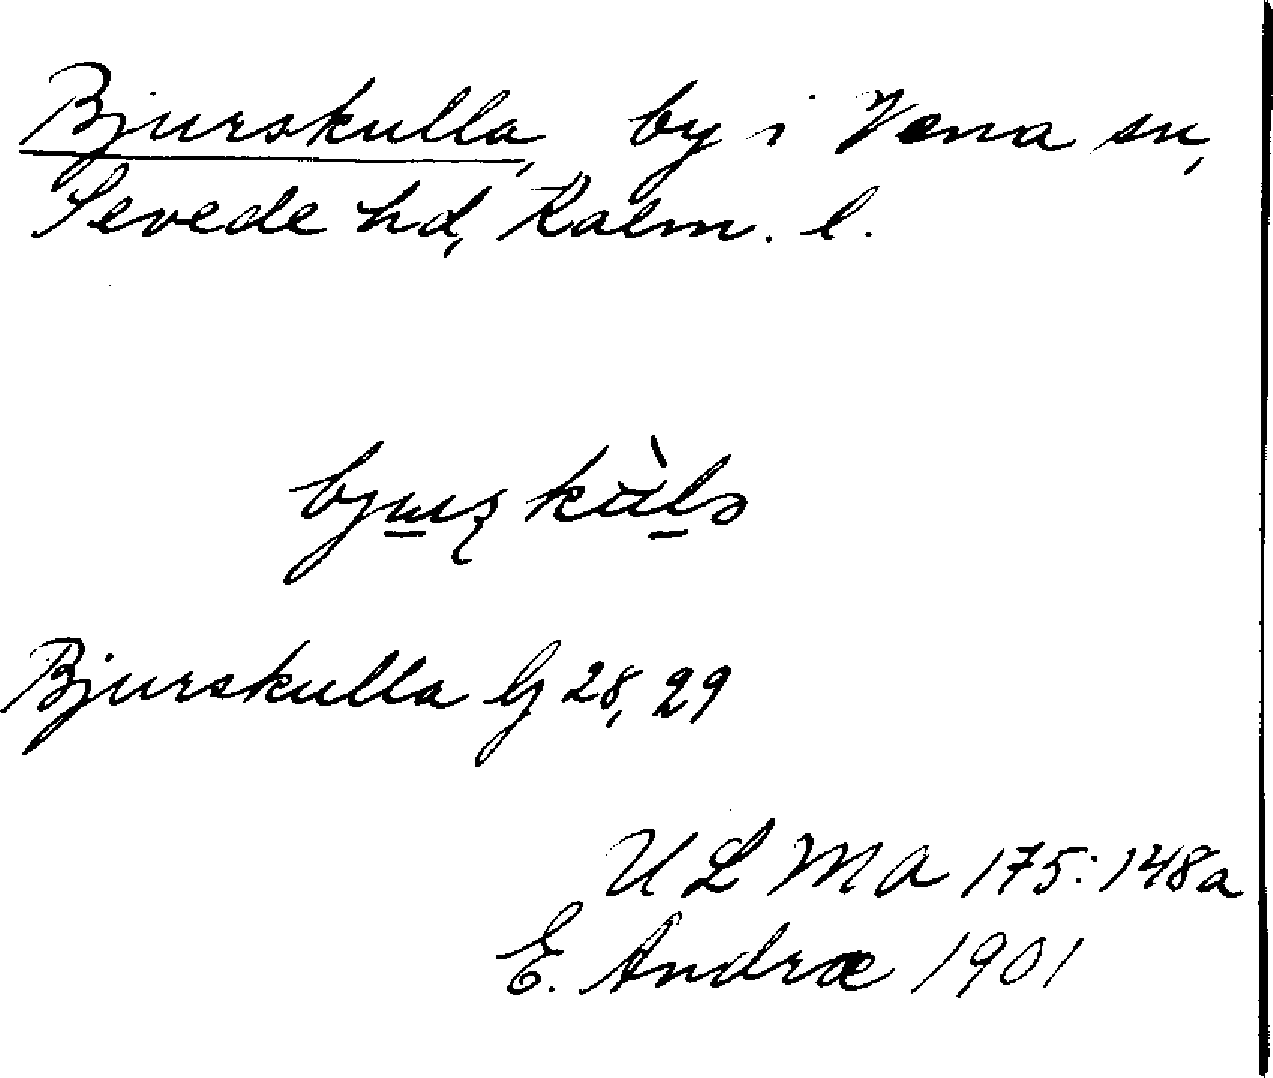 Bjurskulla, by i Vena sn,
Sevede hd, Kalm. l.
Bjurskulla bj 28, 29
ULMA 175:148a
E. Andræ 1901